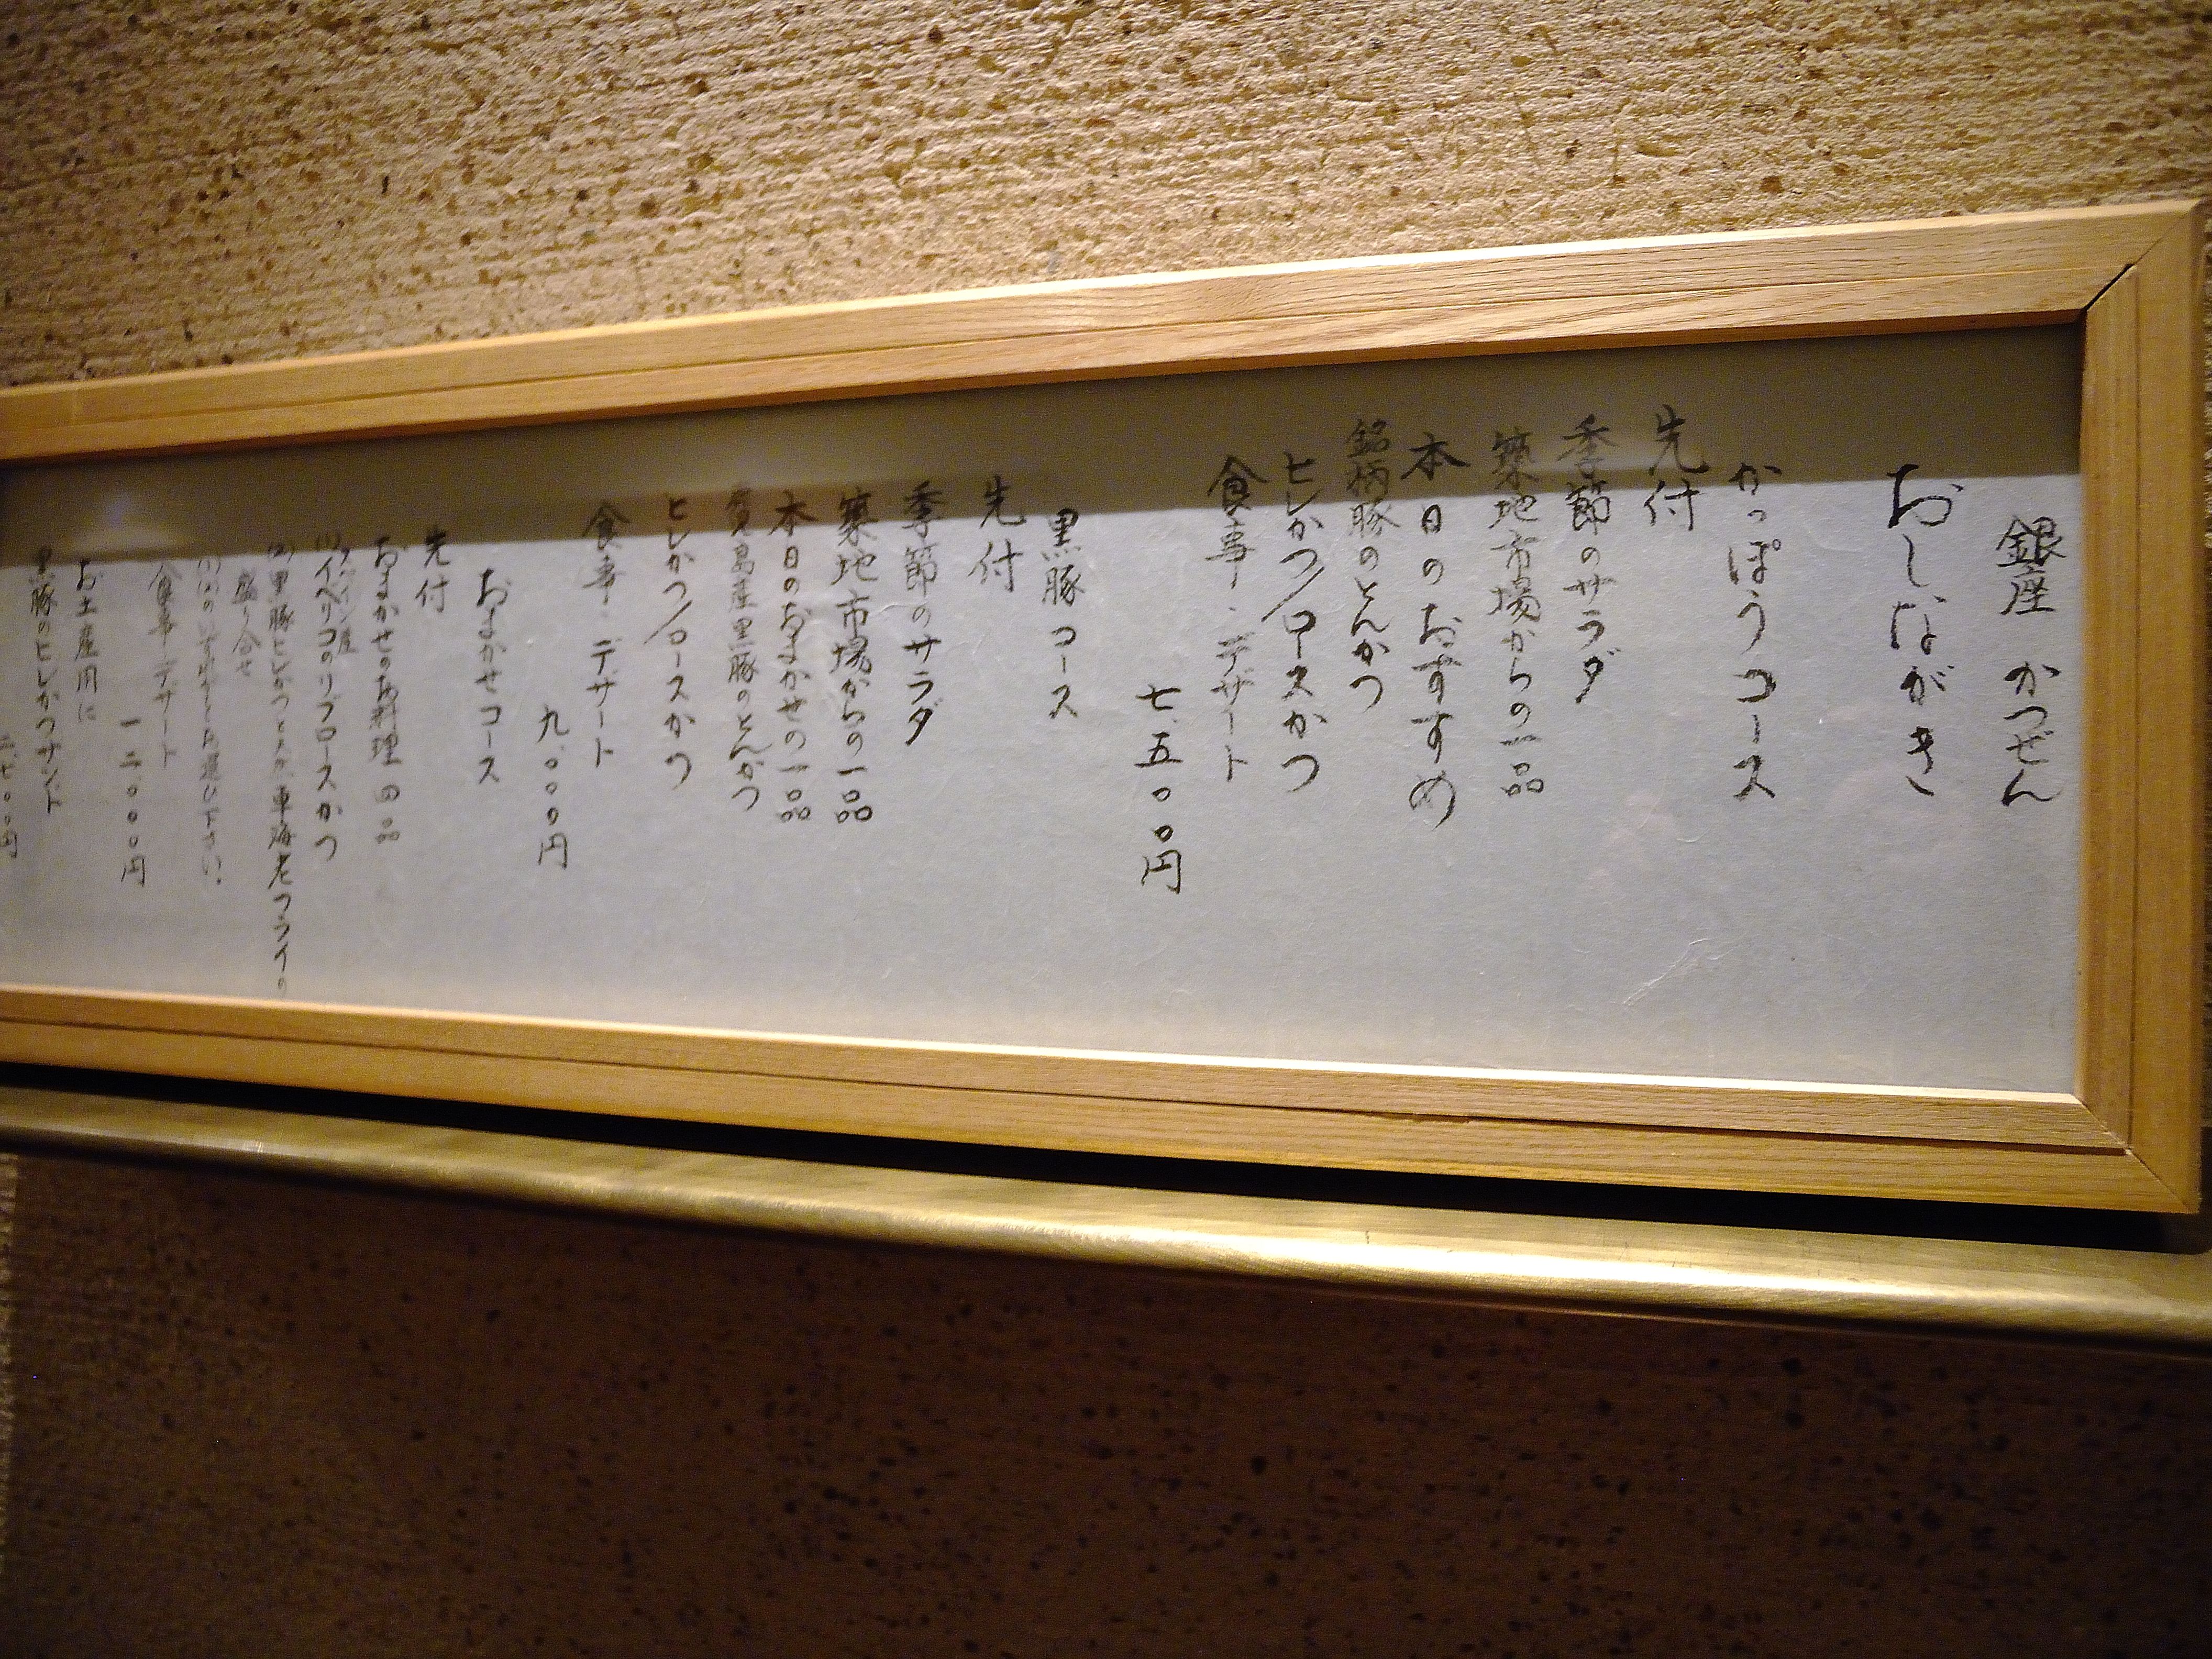 銀座 かつぜん
おしながき
かっぽうコース
先付
季節のサラダ
築地市場からの一品
本日のおすすめ
銘柄豚のとんかつ
ヒレかつ/ロースかつ
食事・デザート
七.五〇〇円
黒豚コース
先付
季節のサラダ
築地市場からの一品
本日のおまかせの一品
島産黒豚のとんかつ
ヒレかつ/ロースかつ
食事・デザート
九.〇〇〇円
おまかせコース
先付
おまかせのお料理四品
スペイン産
(1)イベリコのリブロースかつ
(2)黒豚ヒレかつと 車海老フライの
盛り合せ
食事・デザート
一二.〇〇〇円
お土産用に
黒豚のヒレかつサンド